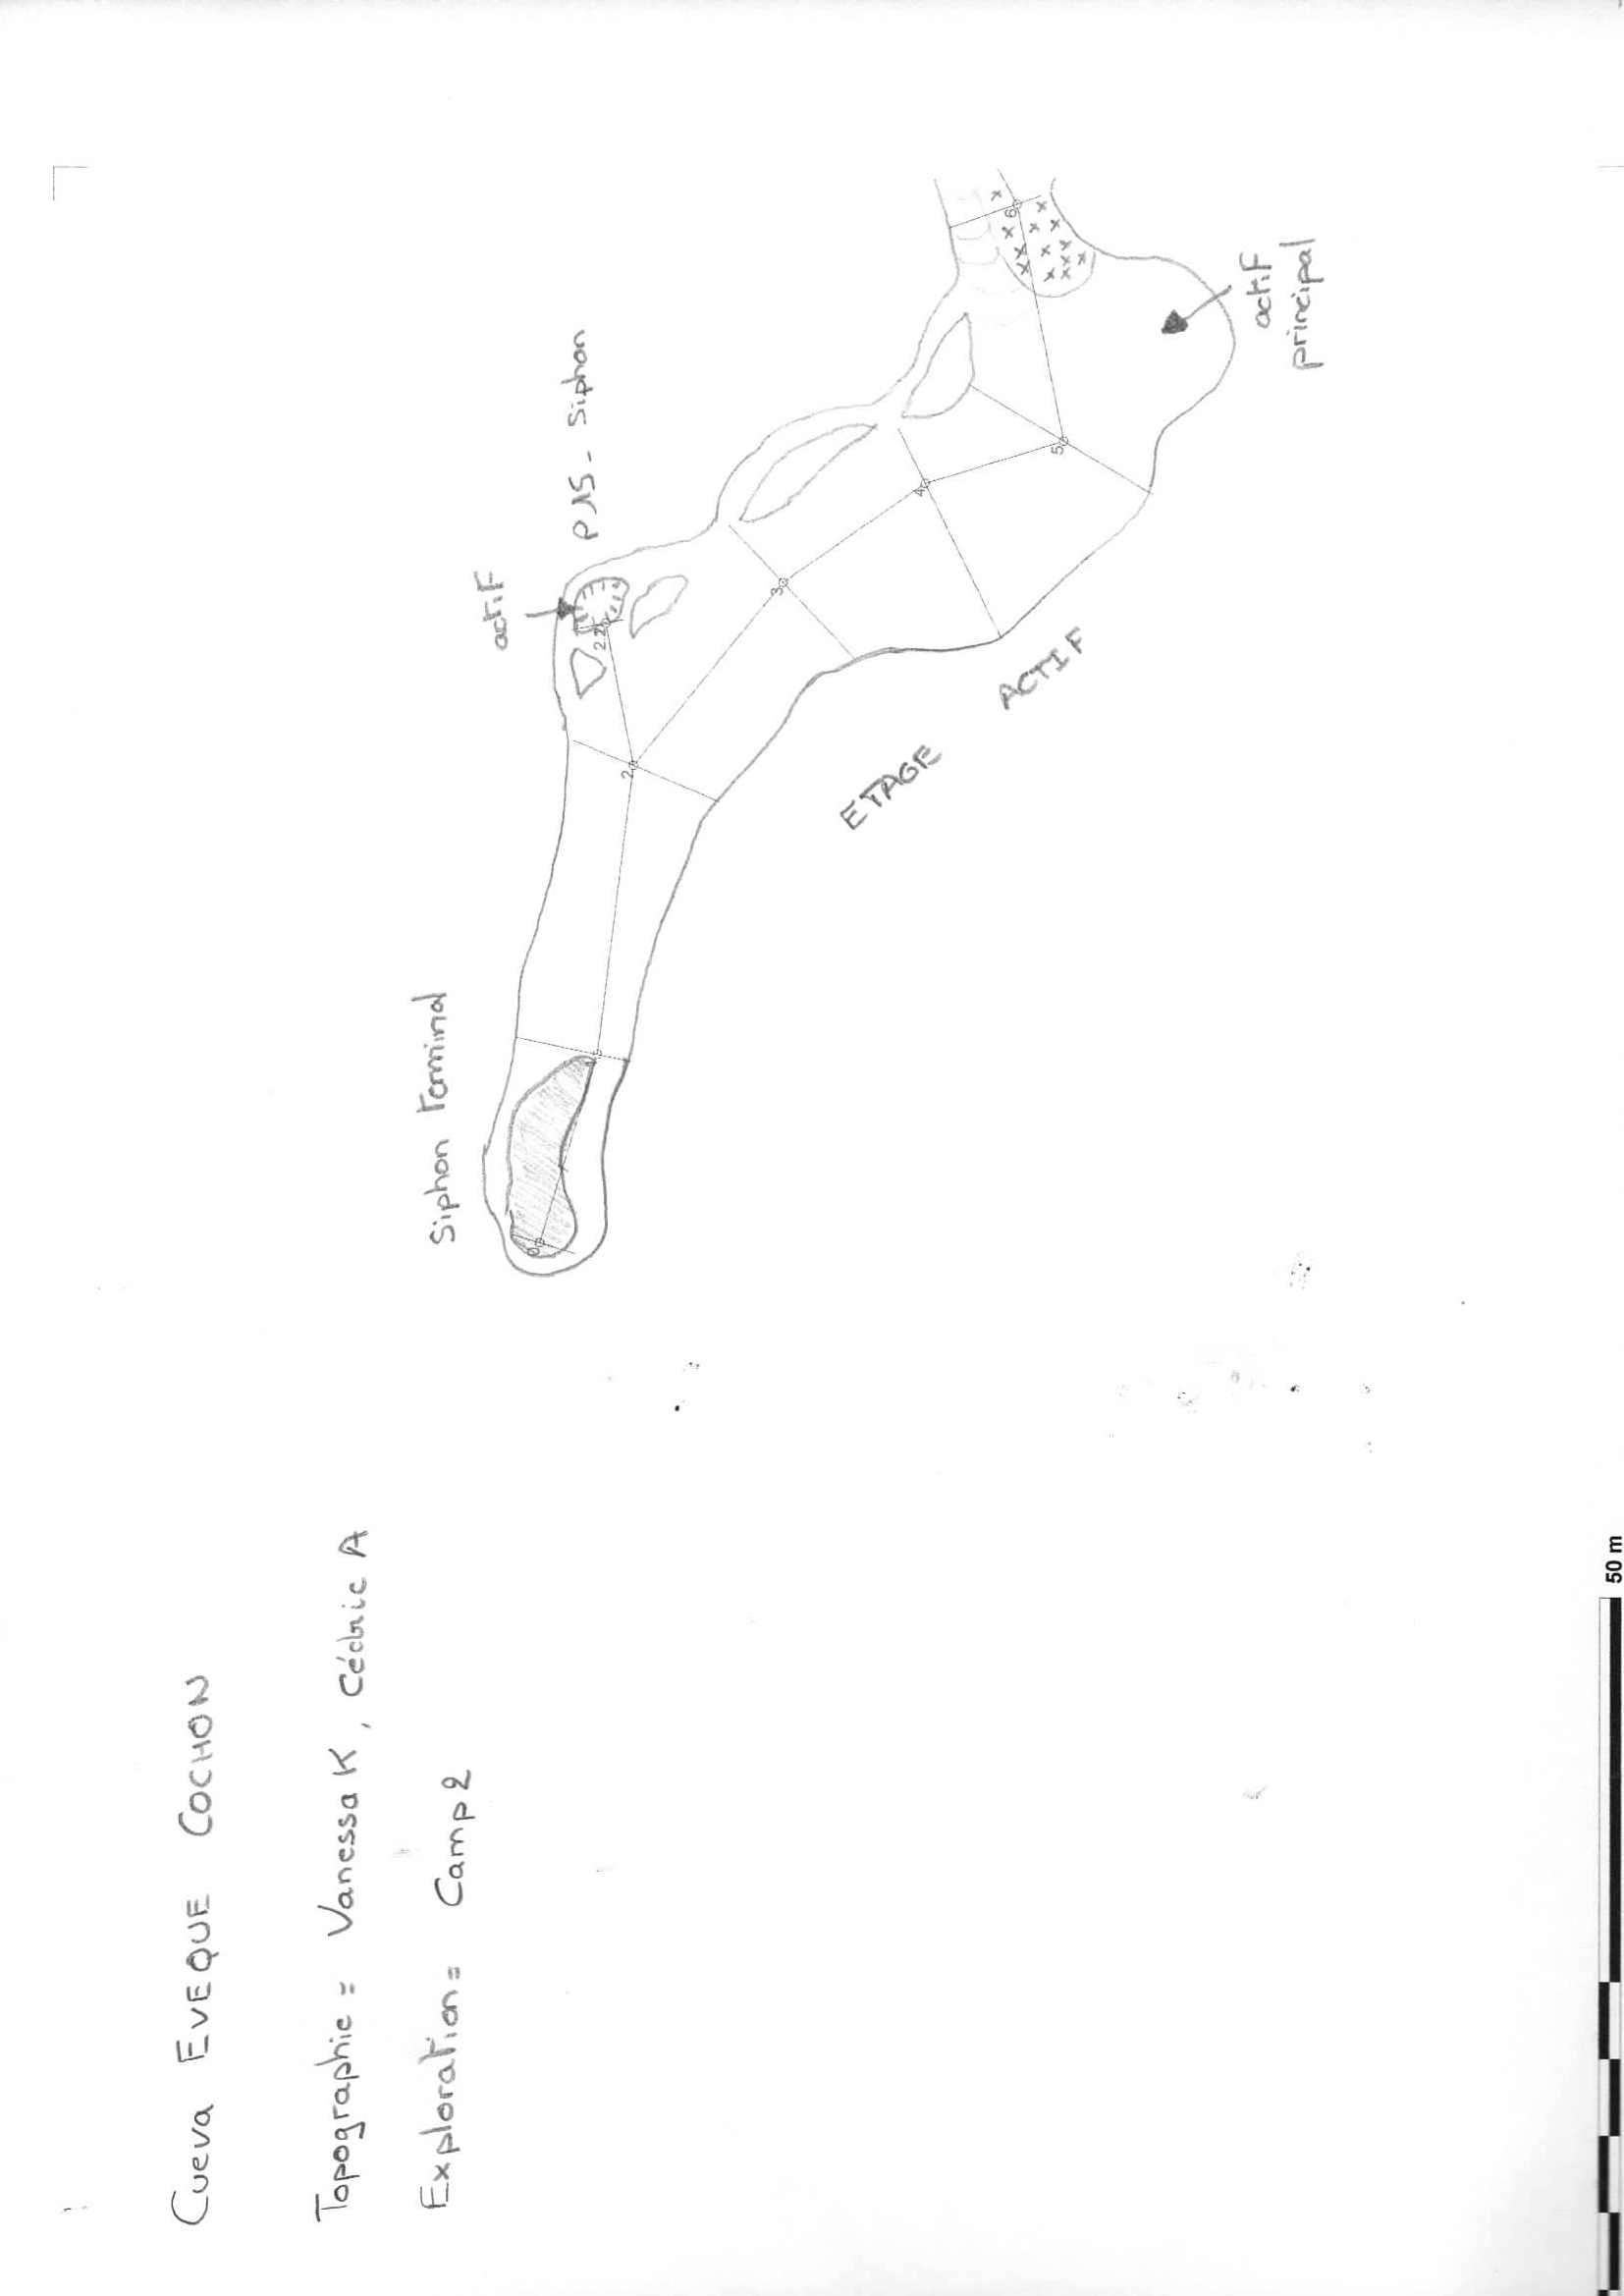 Cueva EVEQUE COCHON
Topographie = Vanessa K, Cédric A
Exploration = Camp 2
Siphon terminal
actif
P15 - Siphon
ETAGE ACTIF
actif
principal
0
2
2.2
3
4
5
6
50 m